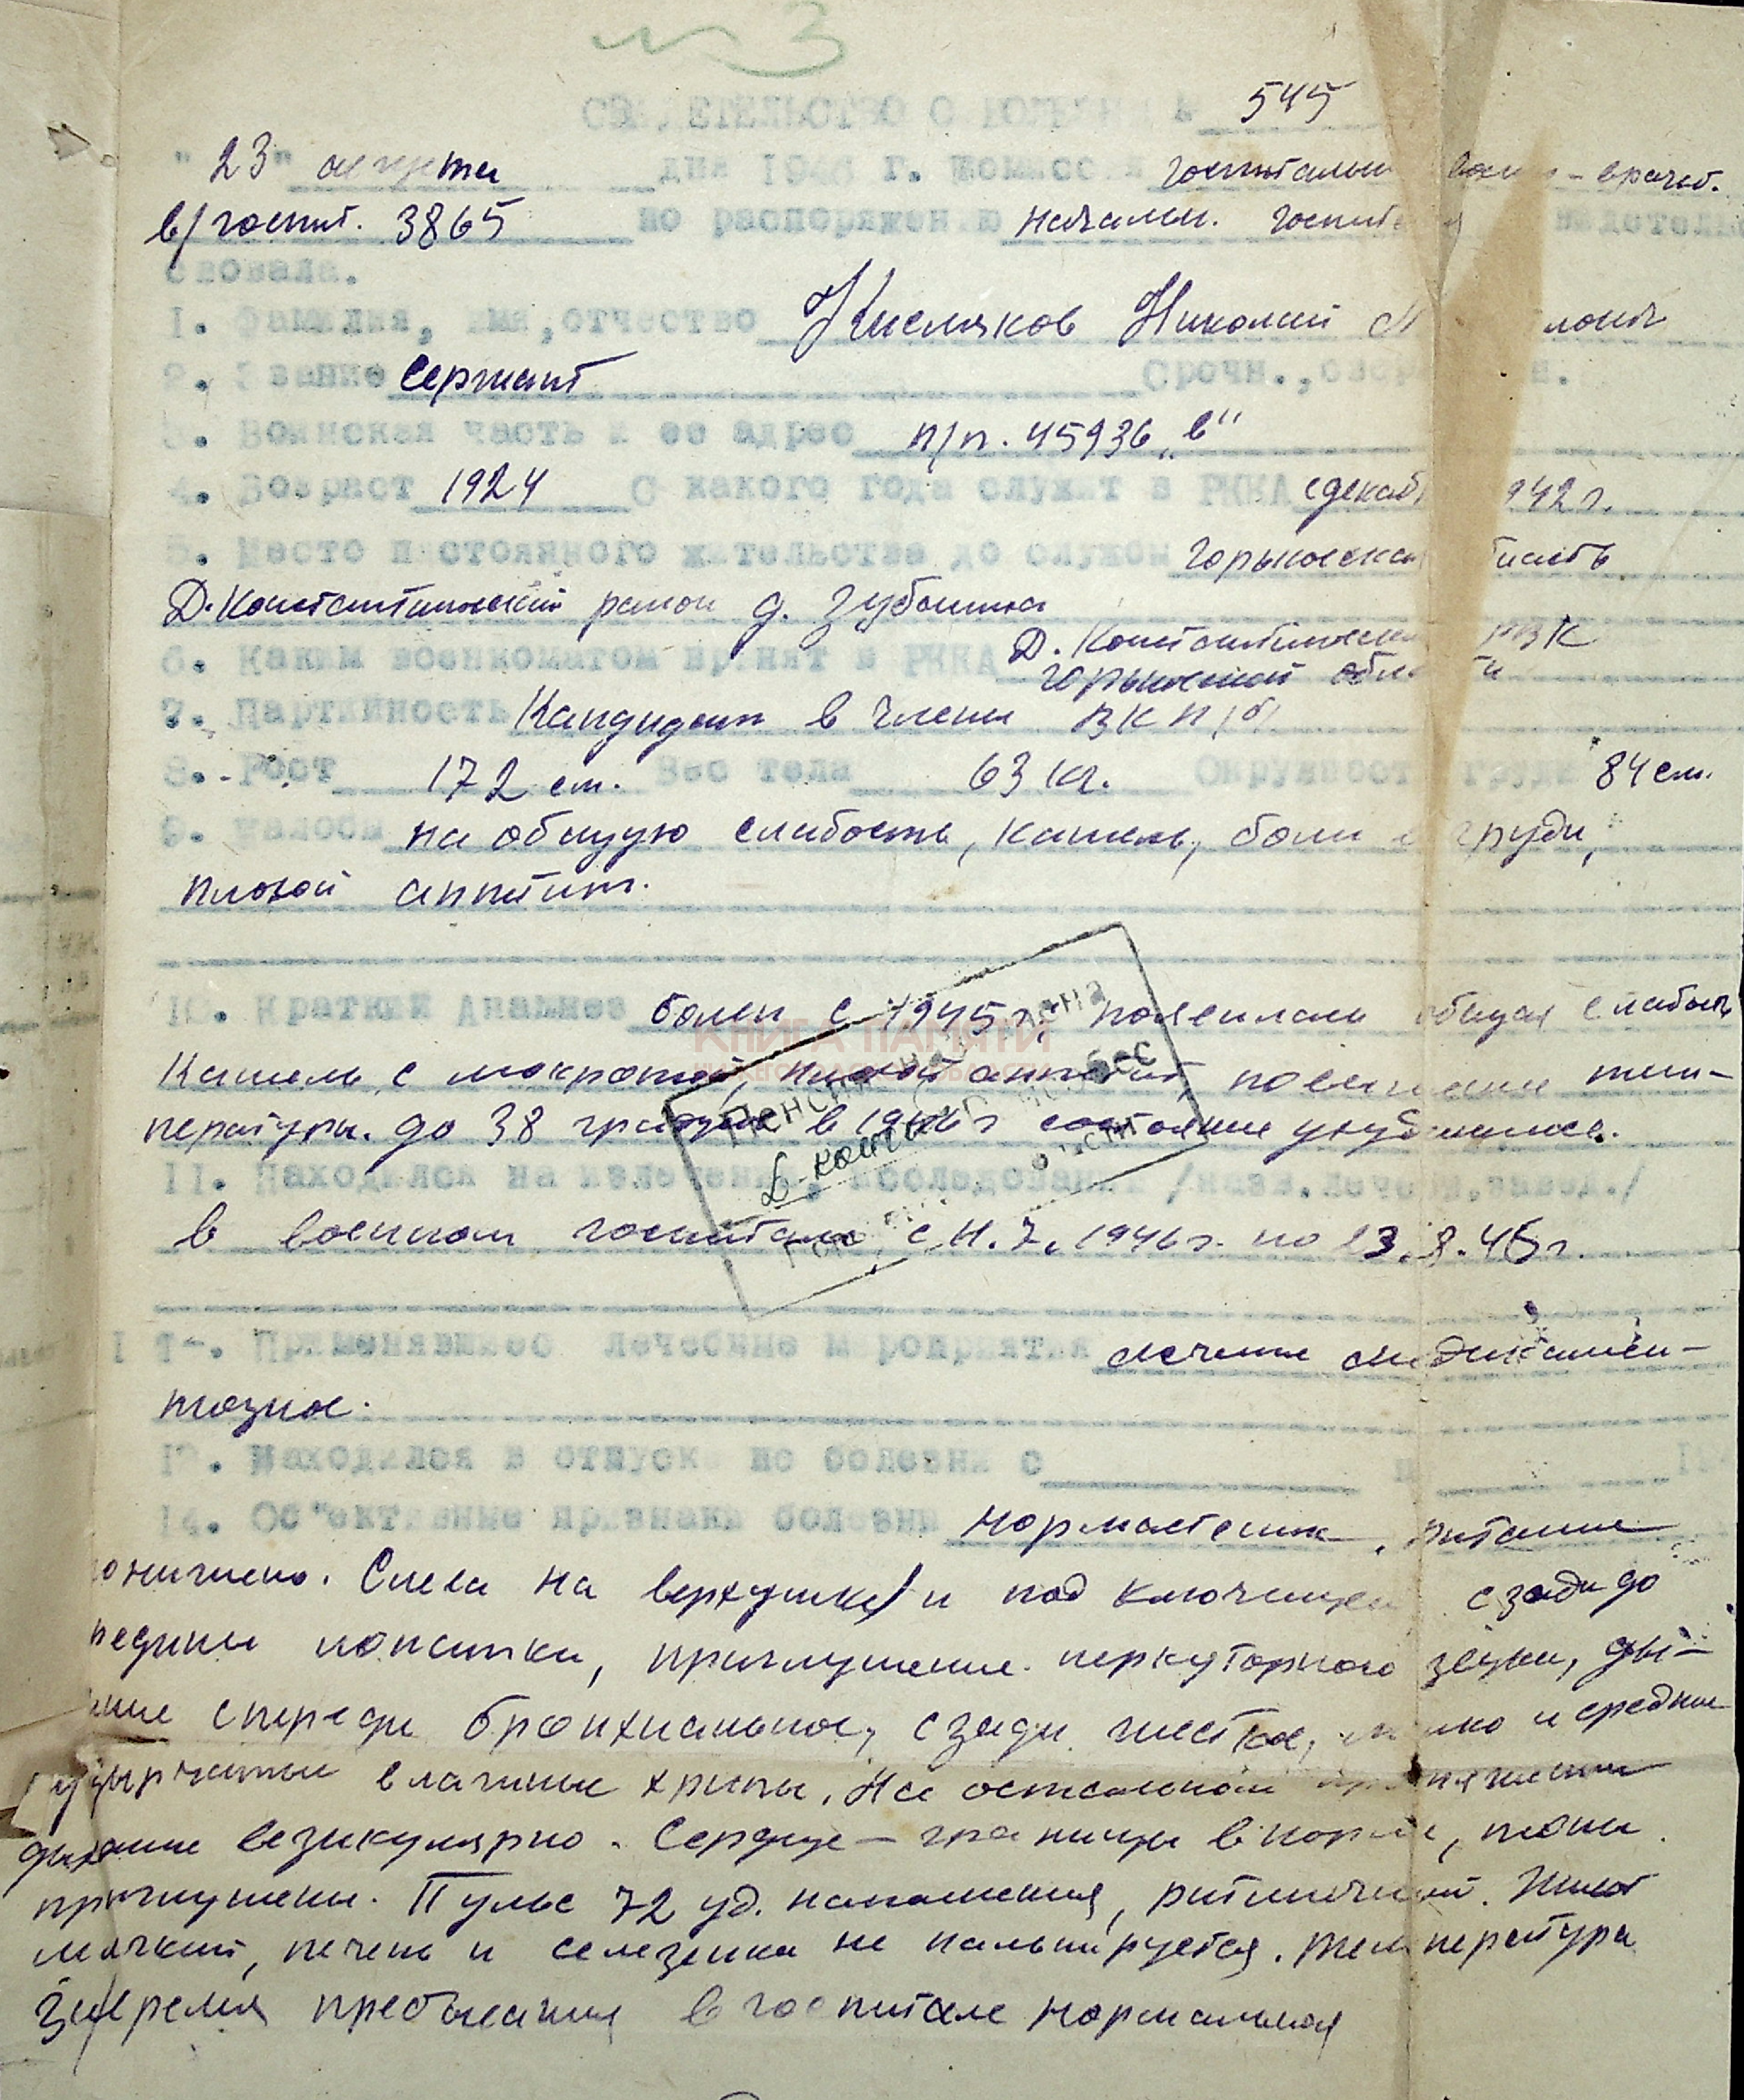 № 3
СВИДЕТЕЛЬСТВО О БОЛЕЗНИ № 545
"23" августа дня 1946 г. Комиссия госпитальн врачеб.
в/госпит. 3865 по распоряжению начальн. госпит
ствовала.
1. Фамилия, имя, отчество Кисляков Николай
2. Звание Сержант Срочн.,
3. Воинская часть и ее адрес п/п. 45936 „в"
4. Возраст 1924 С какого года служит в РККА с декаб 1942 г.
5. Место постоянного жительства до службы Горьковская область
Д.Константиновский район д. Зубаниха
6. Каким военкоматом принят в РККА Д. Константиновск РВК
Горьковской области
7. Партийность Кандидат в члены ВКП(б)
8. Рост 172 см. Вес тела 63 кг. Окружность груди 84 см.
9. Жалобы на общую слабость, кашель, боли в груди,
плохой аппетит.
10. Краткий Анамнез болен с 1945 г. появилась общая слабость
КНИГА ПАМЯТИ
Кашель с мокротой, плохой аппетит, повышение тем-
пературы до 38 градусов в 1946 г состояние ухудшилось.
11. Находился на излечении, исследовании /назв.лечебн.завед./
в военном госпитале с 11.7.1946 г. по 23.8.46 г.
Применявшиеся лечебные мероприятия лечение медикамен-
тозное.
13. Находился в отпуске по болезни с
14. Об"ективные признаки болезни Нормастеник, питание
понижено. Слева на верхушке и под ключицей сзади до
средины лопатки, приглушение перкуторного звука, ды-
хание спереди бронхиальное, сзади жесткое, мелко и средне
пузырчатые влажные хрипы. На остальном протяжении
дыхание везикулярно. Сердце – границы в норме, тоны
приглушены. Пульс 72 уд. наполнения, ритмичный. Живот
мягкий, печень и селезенка не пальпируется. Температура
за время пребывания в госпитале нормальная